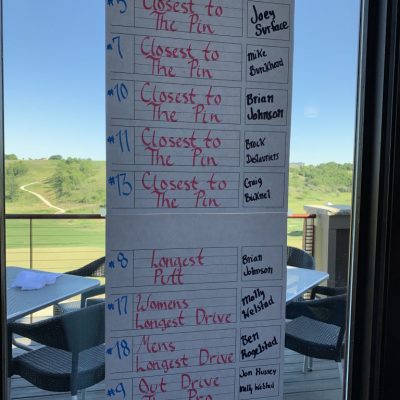 #5 Closest to
The Pin
Joey
Surface
#7 Closest to
The Pin
Mike
Burckhard
#10 Closest to
The Pin
Brian
Johnson
#11 Closest to
The Pin
Brock
Deslauriers
#13 Closest to
The Pin
Craig
Bucknel
#8 Longest
Putt
Brian
Johnson
#17 Womens
Longest Drive
Molly
Welstad
#18 Mens
Longest Drive
Ben
Rogelstad
#9 Out Drive
The Pro
Jon Hussey
Molly Welstad